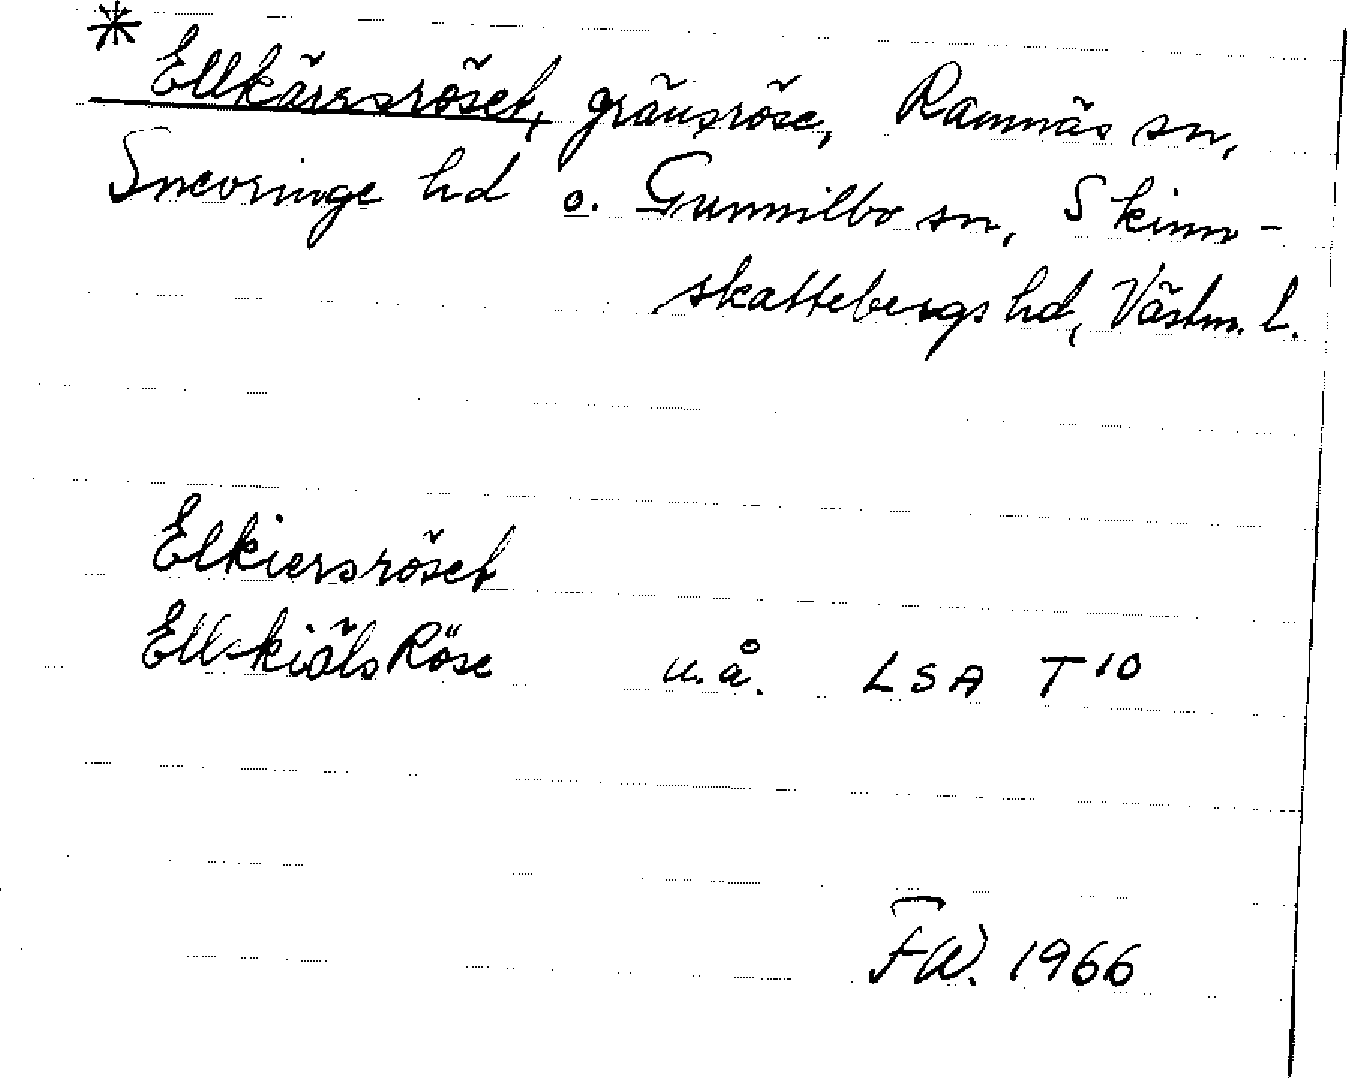 * Ellkärrsröset, gränsröse, Ramnäs sn,
Snevringe hd o. Gunnilbo sn, Skinn-
skattebergs hd, Västm. L.
Elkiersröset
Ellskiäls Röse u.å. LSA T 10
FW. 1966